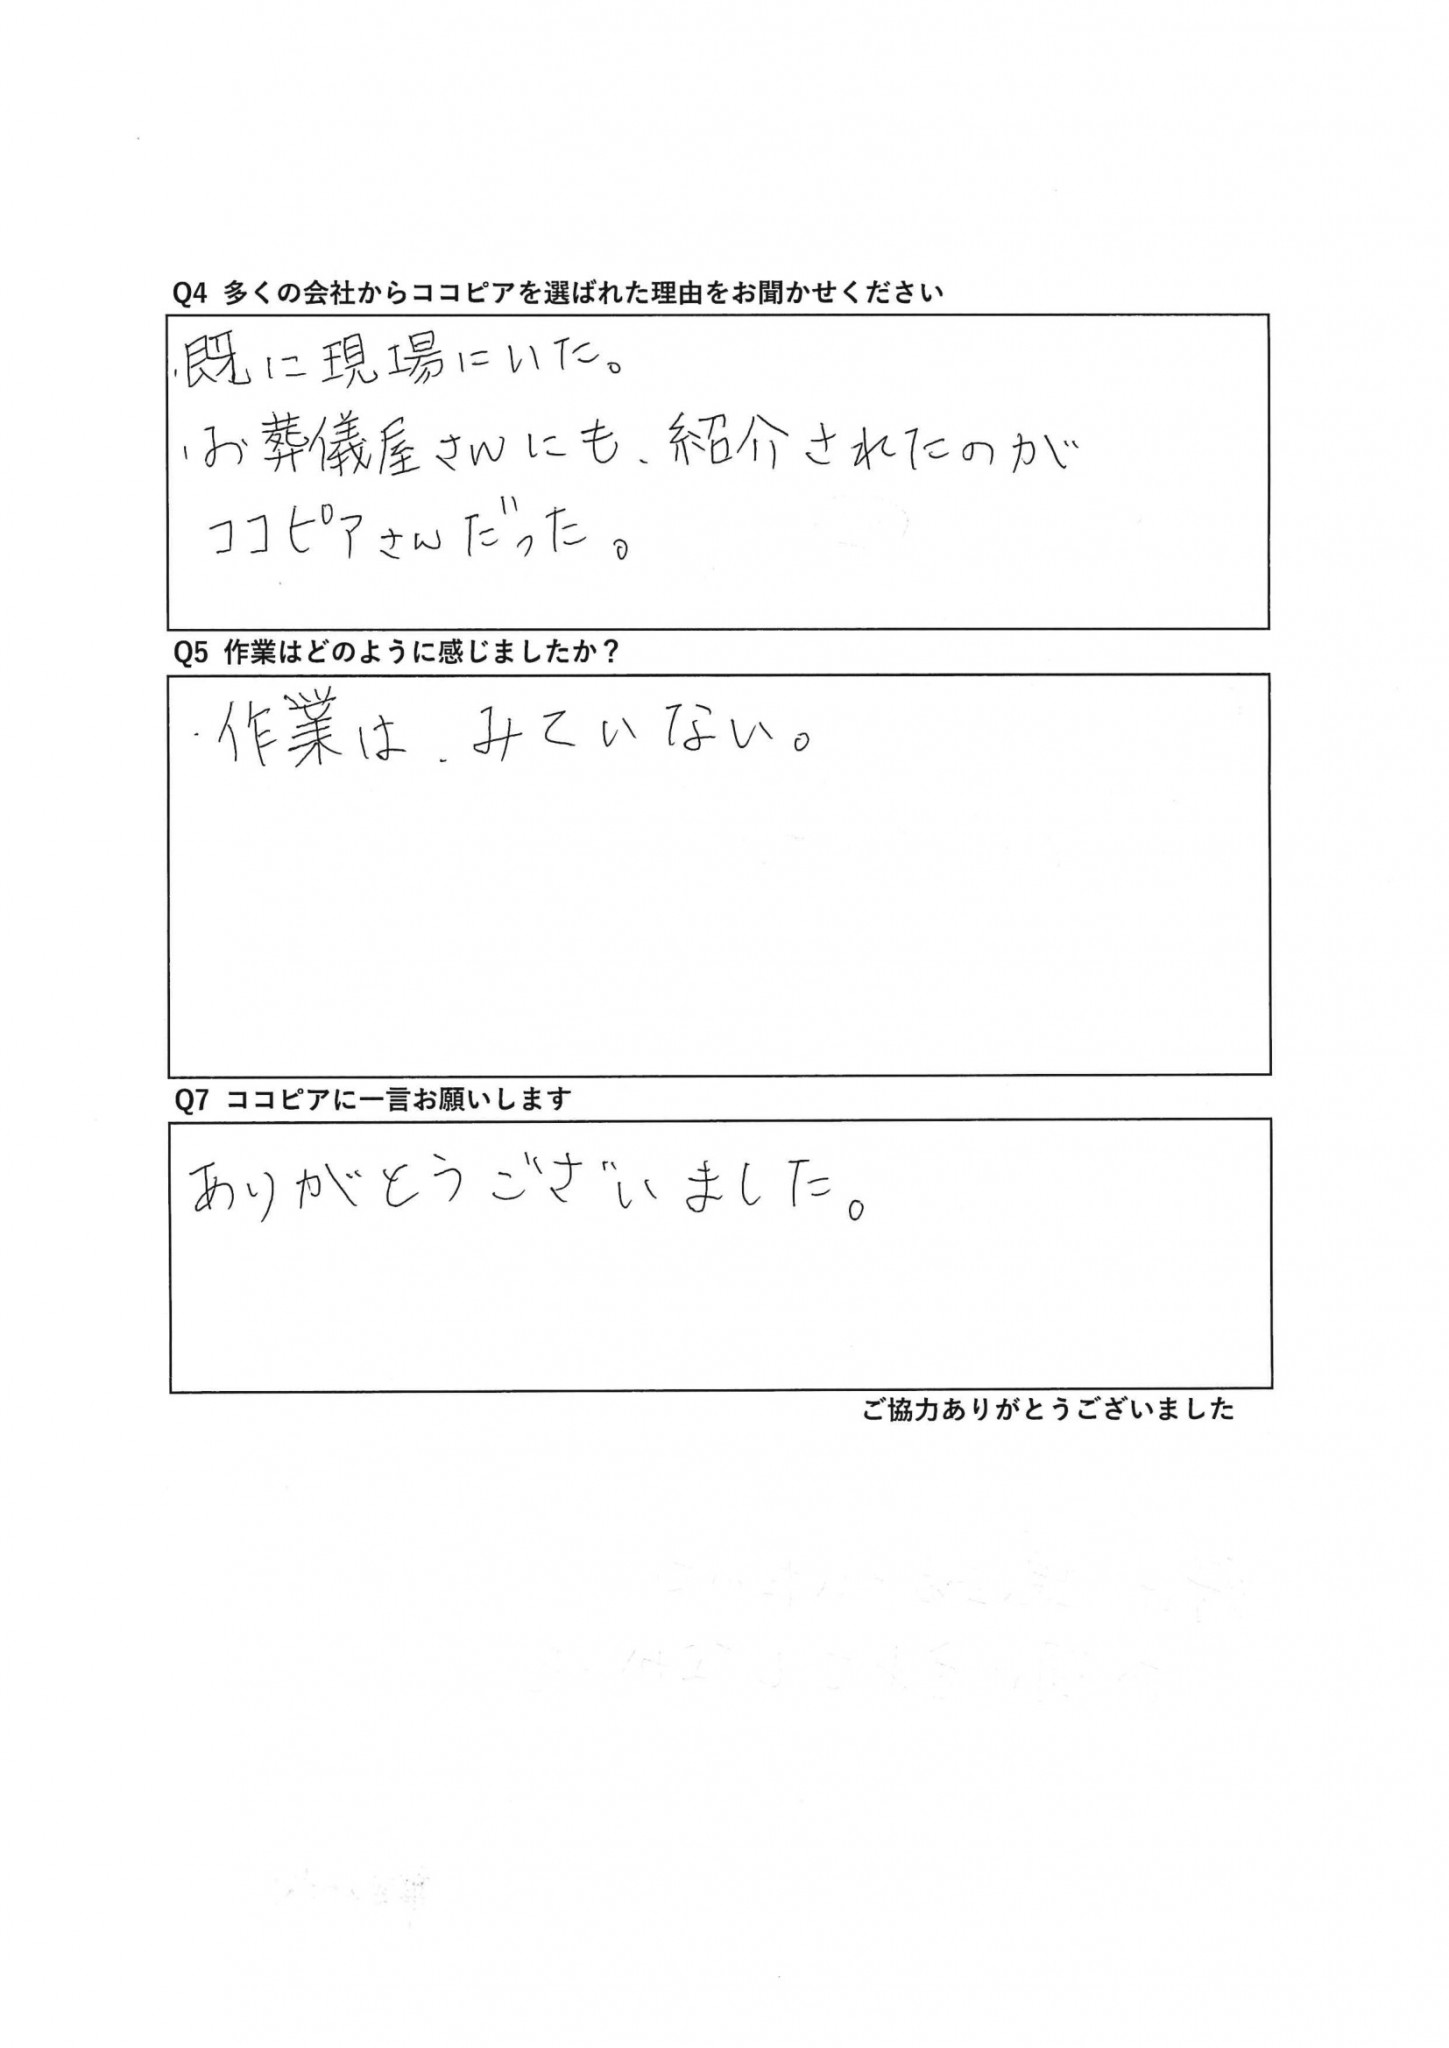 Q4 多くの会社からココピアを選ばれた理由をお聞かせください
・既に現場にいた。
・お葬儀屋さんにも、紹介されたのが
ココピアさんだった。
Q5 作業はどのように感じましたか？
・作業は、みていない。
Q7 ココピアに一言お願いします
ありがとうございました。
ご協力ありがとうございました